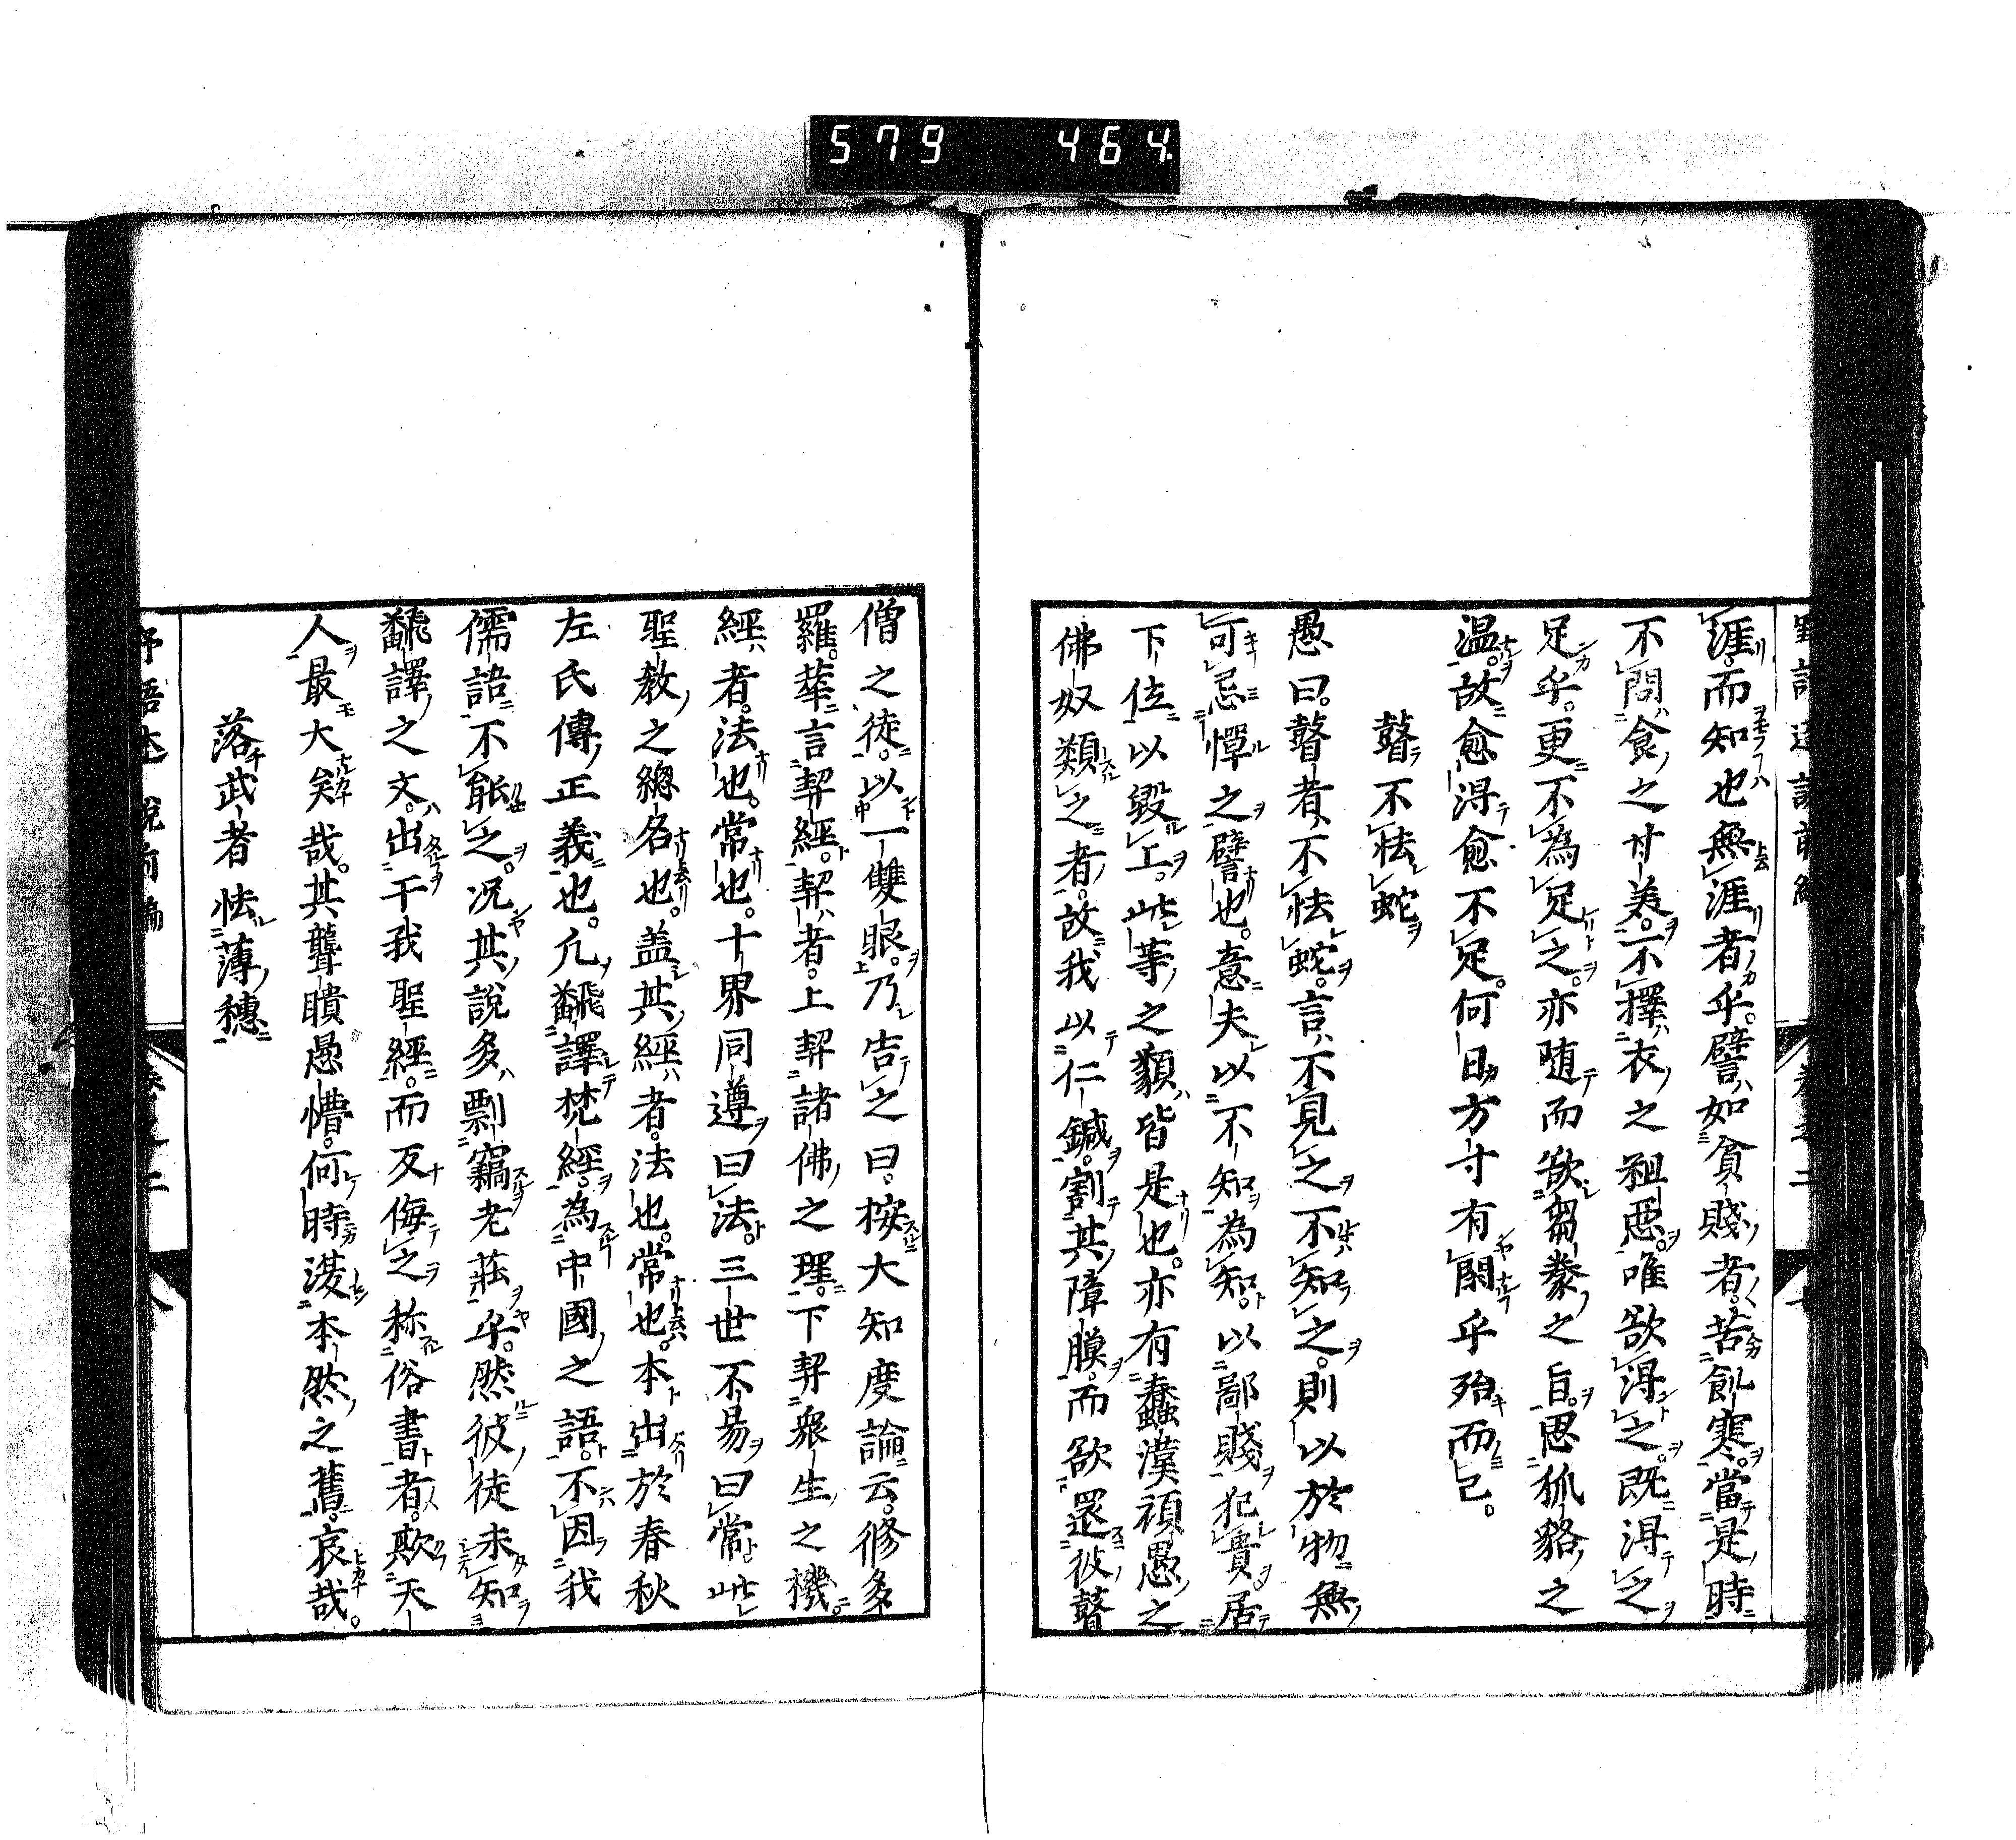 579 464.
涯。而知也無涯者乎。譬如貧賤者。苦飢寒。當是時
不問食之甘美。不擇衣之粗惡。唯欲淂之。既淂之
足乎。更不為足之。亦随而欲芻豢之旨。思狐貉之
温。故愈淂愈不足。何日方寸有閑乎殆而已。
瞽不怯蛇
愚曰。瞽者不怯蛇。言不見之不知之。則以於物無
可忌憚之譬也。意夫以不知為知。以鄙賤犯貴。居
下位以毀上。此等之類皆是也。亦有蠢漢頑愚之
佛奴類之者。故我以仁鍼割其障膜。而欲還彼瞽
僧之徒。以一雙眼。乃告之曰。按大知度論云。修多
羅。華言契經。契者。上契諸佛之理。下契衆生之機
經者。法也。常也。十界同遵曰法。三世不易曰常此
聖教之總名也。盖其經者。法也。常也。本出於春秋
左氏傳正義也。凢飜譯梵經。為中國之語。不因我
儒語不能之。况其說多剽竊老莊乎。然彼徒未知
飜譯之文。出于我聖經。而反侮之称俗書者。欺天
人最大矣哉。其聾瞶愚懵。何時復本然之舊。哀哉。
落武者怯薄穗